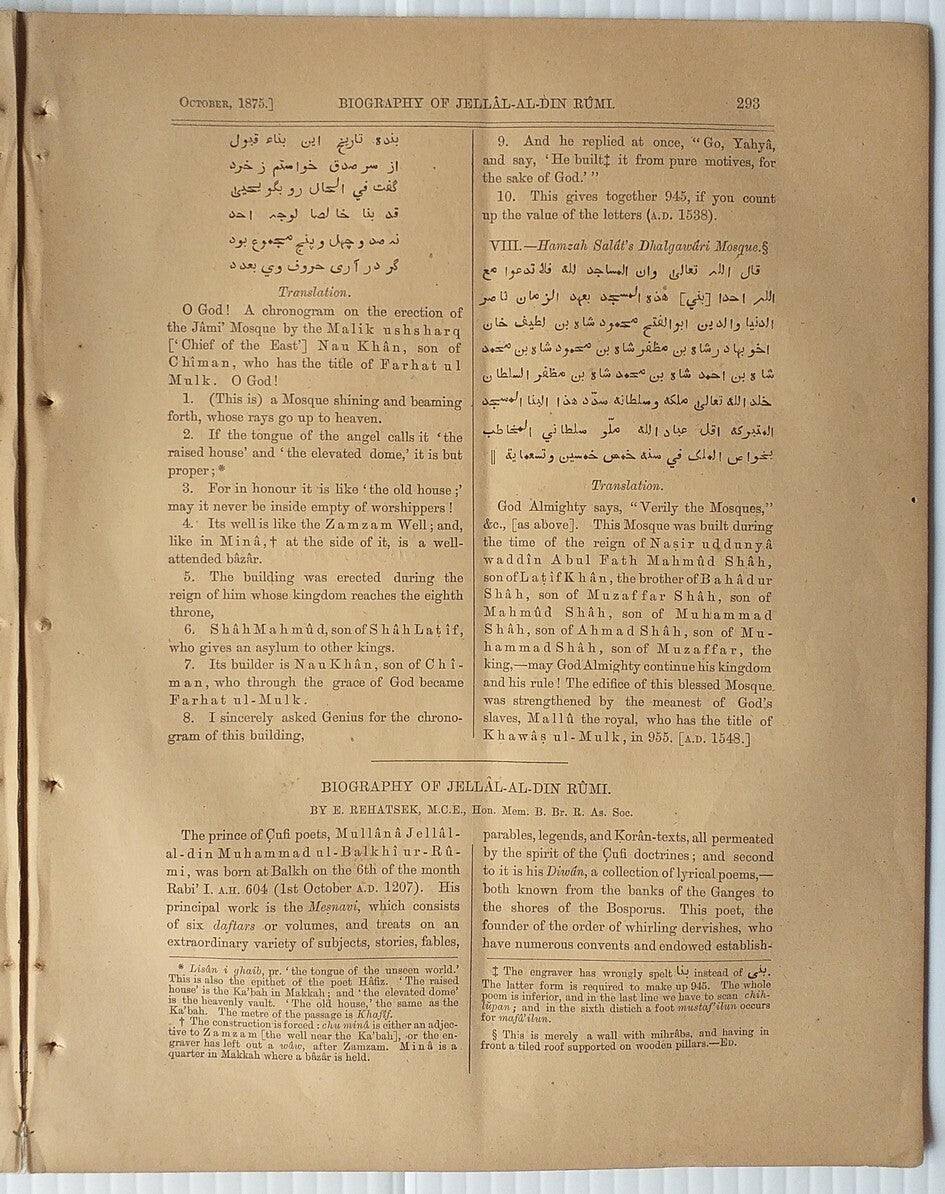 OCTOBER, 1875.] BIOGRAPHY OF JELLÂL-AL-DIN RÛMI. 293
بنده تاريخ اين بناء قبول
از سر صدق خواستم ز خرد
گفت في الحال رو بگو يحيى
قد بنا خالصا لوجه احد
نه صد و چهل و پنج مجموع بود
گر در آرى حروف وى بعدد
Translation.
O God! A chronogram on the erection of
the Jâmi' Mosque by the Malik ushsharq
['Chief of the East'] Nau Khân, son of
Chîman, who has the title of Farhat ul
Mulk. O God!
1. (This is) a Mosque shining and beaming
forth, whose rays go up to heaven.
2. If the tongue of the angel calls it 'the
raised house' and 'the elevated dome,' it is but
proper;*
3. For in honour it is like 'the old house;'
may it never be inside empty of worshippers!
4. Its well is like the Zamzam Well; and,
like in Minâ,† at the side of it, is a well-
attended bâzâr.
5. The building was erected during the
reign of him whose kingdom reaches the eighth
throne,
6. Shâh Mahmûd, son of Shâh Laṭîf,
who gives an asylum to other kings.
7. Its builder is Nau Khân, son of Chî-
man, who through the grace of God became
Farhat ul-Mulk.
8. I sincerely asked Genius for the chrono-
gram of this building,
9. And he replied at once, "Go, Yahyâ,
and say, 'He built‡ it from pure motives, for
the sake of God.'"
10. This gives together 945, if you count
up the value of the letters (A.D. 1538).
VIII.—Hamzah Salât's Dhalgawâri Mosque.§
قال الله تعالى وان المساجد لله فلا تدعوا مع
الله احدا [بني] هذه المسجد بعهد الزمان ناصر
الدنيا والدين ابوالفتح محمود شاه بن لطيف خان
اخو بهادر شاه بن مظفر شاه بن محمود شاه بن محمد
شاه بن احمد شاه بن محمد شاه بن مظفر السلطان
خلد الله تعالى ملكه وسلطانه سدّد هذا البنا المسجد
المتبركه اقل عباد الله ملّو سلطاني المخاطب
بخواص الملك في سنه خمس خمسين وتسعماية ||
Translation.
God Almighty says, "Verily the Mosques,"
&c., [as above]. This Mosque was built during
the time of the reign of Naṣir uddunyâ
waddîn Abul Fath Mahmûd Shâh,
son of Laṭîf Khân, the brother of Bahâdur
Shâh, son of Muzaffar Shâh, son of
Mahmûd Shâh, son of Muhammad
Shâh, son of Ahmad Shâh, son of Mu-
hammad Shâh, son of Muzaffar, the
king,—may God Almighty continue his kingdom
and his rule! The edifice of this blessed Mosque
was strengthened by the meanest of God's
slaves, Mallû the royal, who has the title of
Khawâṣ ul-Mulk, in 955. [A.D. 1548.]
BIOGRAPHY OF JELLÂL-AL-DIN RÛMI.
BY E. REHATSEK, M.C.E., Hon. Mem. B. Br. R. As. Soc.
The prince of Çufi poets, Mullânâ Jellâl-
al-din Muhammad ul-Balkhî ur-Rû-
mi, was born at Balkh on the 6th of the month
Rabi' I. A.H. 604 (1st October A.D. 1207). His
principal work is the Meṣnavi, which consists
of six daftars or volumes, and treats on an
extraordinary variety of subjects, stories, fables,
parables, legends, and Korân-texts, all permeated
by the spirit of the Çufi doctrines; and second
to it is his Diwân, a collection of lyrical poems,—
both known from the banks of the Ganges to
the shores of the Bosporus. This poet, the
founder of the order of whirling dervishes, who
have numerous convents and endowed establish-
* Lisân i ghaib, pr. 'the tongue of the unseen world.'
This is also the epithet of the poet Hâfiz. 'The raised
house' is the Ka'bah in Makkah; and 'the elevated dome'
is the heavenly vault. 'The old house,' the same as the
Ka'bah. The metre of the passage is Khafîf.
† The construction is forced: chu minâ is either an adjec-
tive to Zamzam [the well near the Ka'bah], or the en-
graver has left out a wâw, after Zamzam. Minâ is a
quarter in Makkah where a bâzâr is held.
‡ The engraver has wrongly spelt بنا instead of بنى.
The latter form is required to make up 945. The whole
poem is inferior, and in the last line we have to scan chih-
lüpan; and in the sixth distich a foot mustaf'ilun occurs
for mafâ'ilun.
§ This is merely a wall with mihrâbs, and having in
front a tiled roof supported on wooden pillars.—ED.